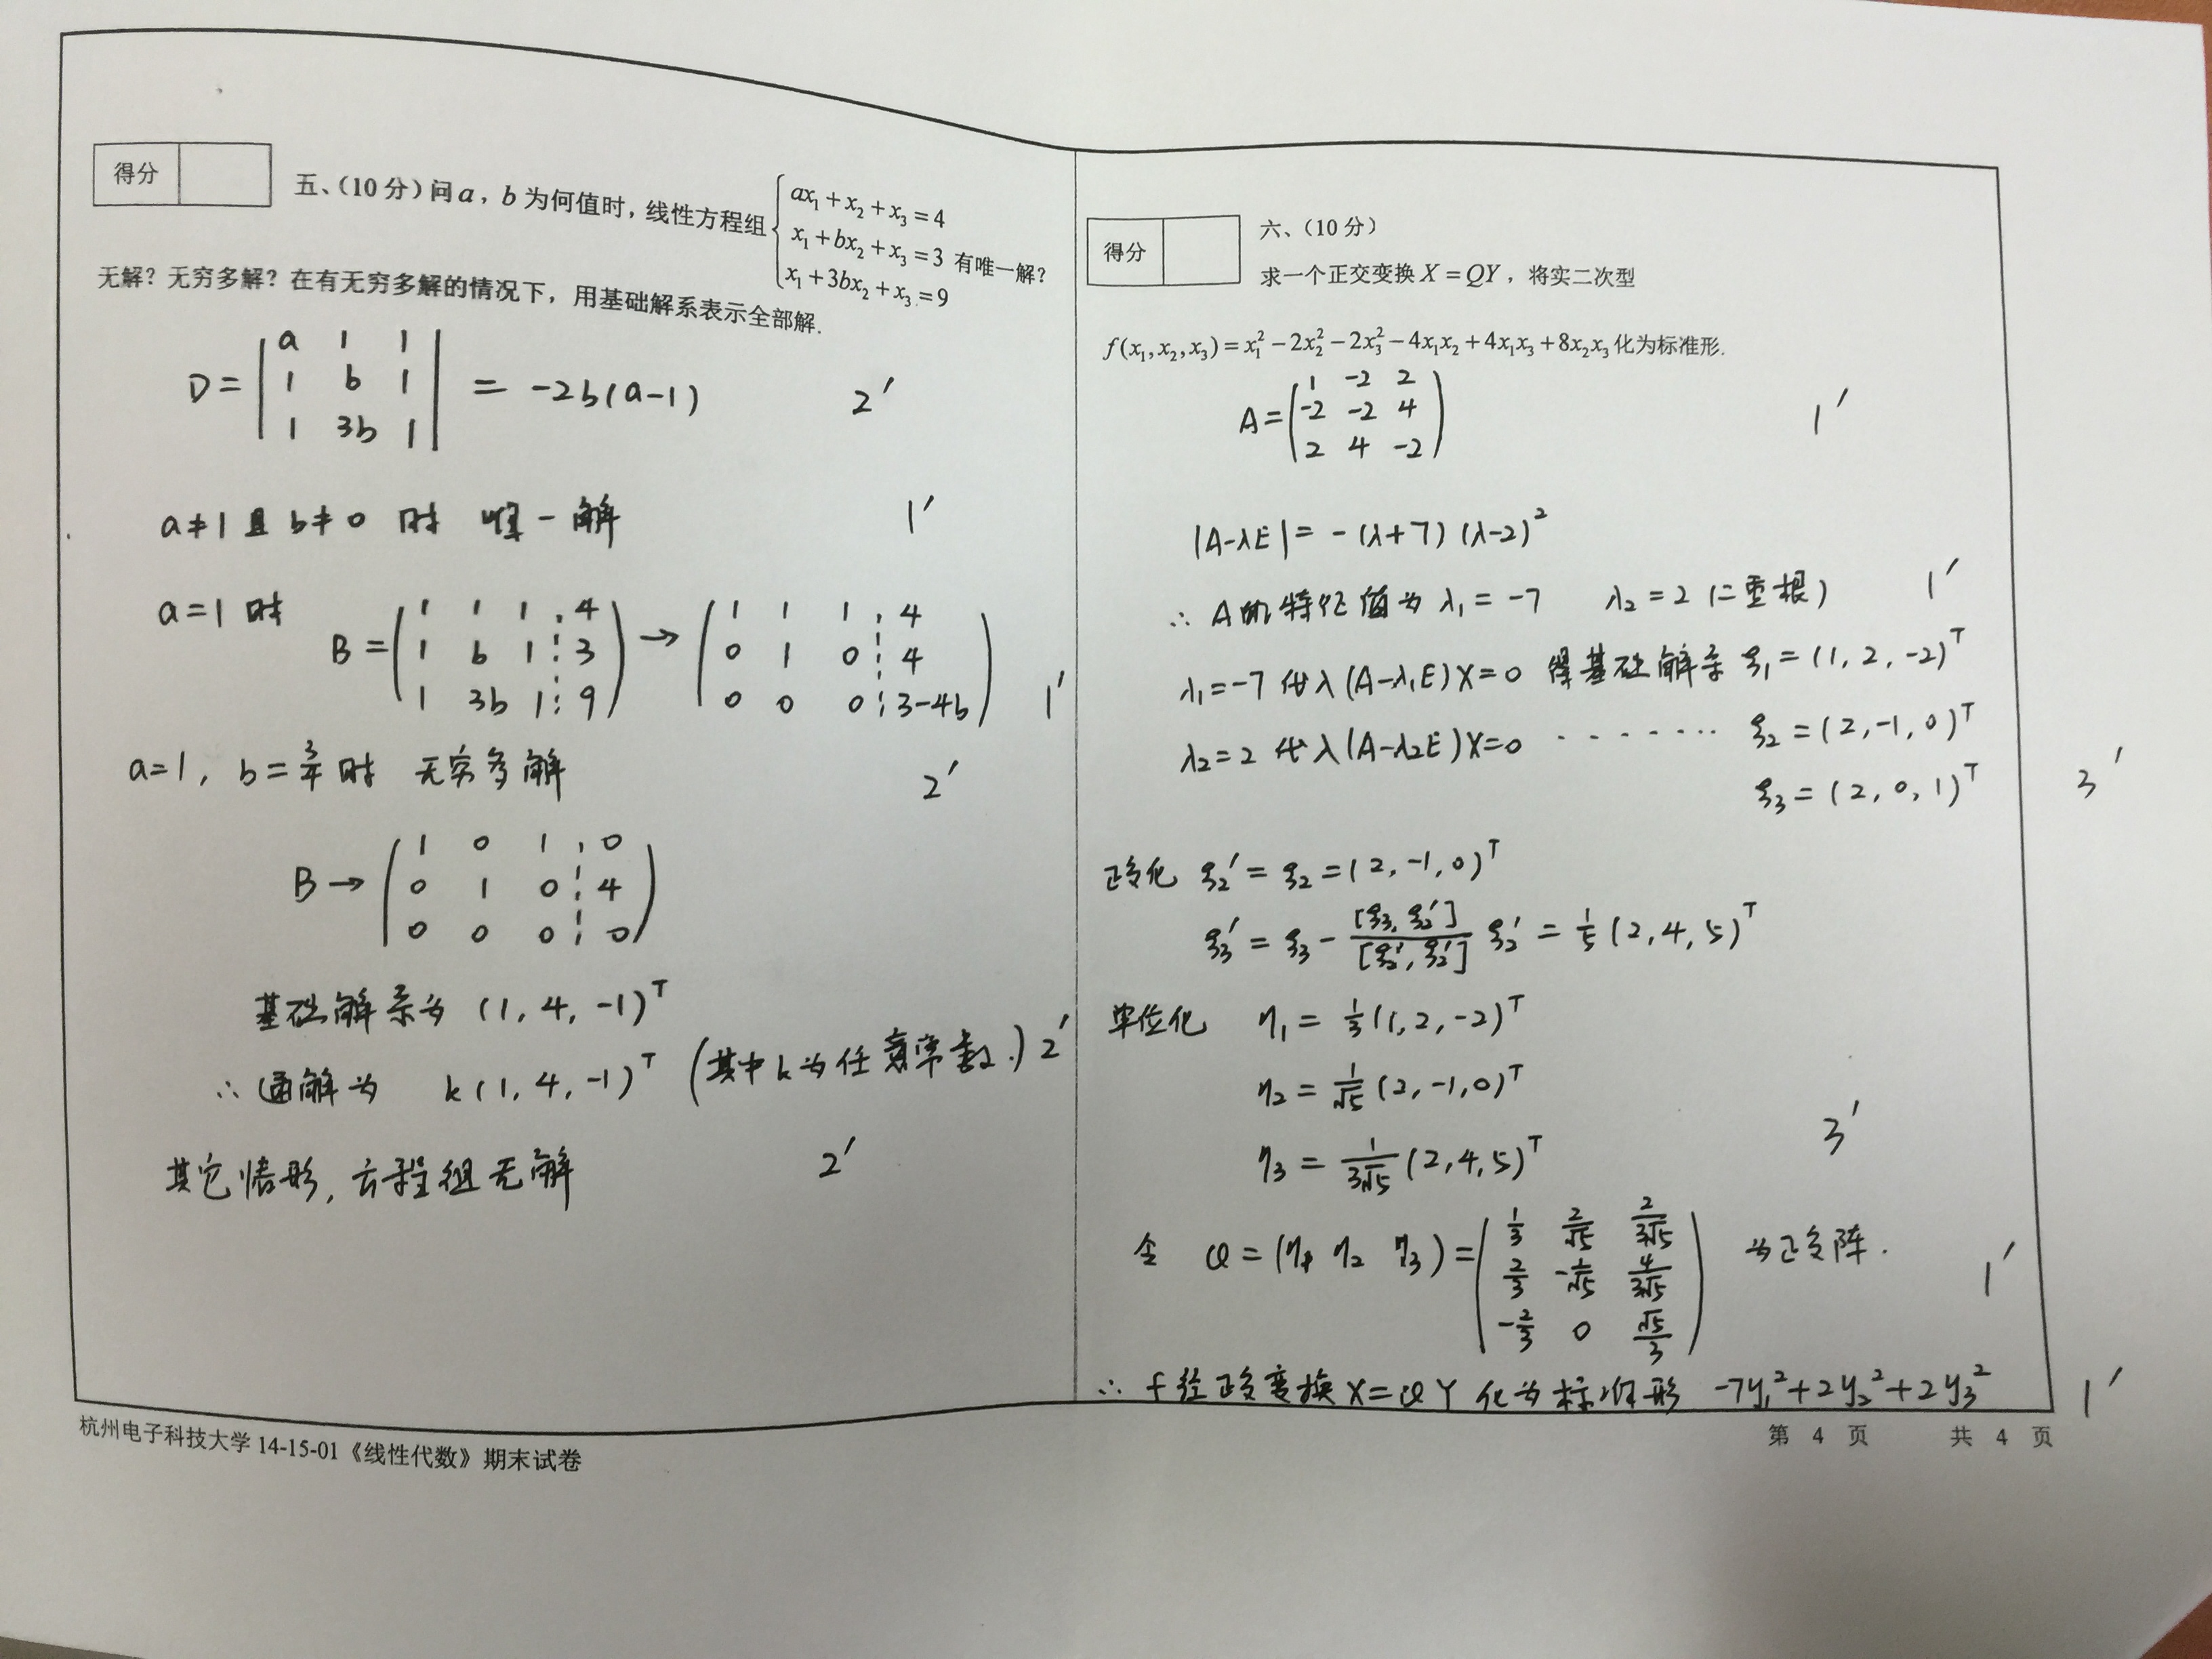 得分
五、(10分) 问a, b为何值时, 线性方程组
ax₁ + x₂ + x₃ = 4
x₁ + bx₂ + x₃ = 3 有唯一解?
x₁ + 3bx₂ + x₃ = 9
无解? 无穷多解? 在有无穷多解的情况下, 用基础解系表示全部解.
D = | a 1 1 |
| 1 b 1 | = -2b(a-1) 2′
| 1 3b 1 |
a≠1 且 b≠0 时 唯一解 1′
a=1 时
B = ( 1 1 1 ¦ 4 ) → ( 1 1 1 ¦ 4 )
( 1 b 1 ¦ 3 ) ( 0 1 0 ¦ 4 )
( 1 3b 1 ¦ 9 ) ( 0 0 0 ¦ 3-4b ) 1′
a=1, b=3/4 时 无穷多解 2′
B → ( 1 0 1 ¦ 0 )
( 0 1 0 ¦ 4 )
( 0 0 0 ¦ 0 )
基础解系为 (1, 4, -1)ᵀ
∴ 通解为 k(1, 4, -1)ᵀ (其中k为任意常数.) 2′
其它情形, 方程组无解 2′
得分
六、(10分)
求一个正交变换 X = QY, 将实二次型
f(x₁, x₂, x₃) = x₁² - 2x₂² - 2x₃² - 4x₁x₂ + 4x₁x₃ + 8x₂x₃ 化为标准形.
A = ( 1 -2 2 )
( -2 -2 4 ) 1′
( 2 4 -2 )
|A-λE| = -(λ+7)(λ-2)²
∴ A的特征值为 λ₁=-7 λ₂=2 (二重根) 1′
λ₁=-7 代入(A-λ₁E)X=0 得基础解系 ξ₁=(1, 2, -2)ᵀ
λ₂=2 代入(A-λ₂E)X=0 ······· ξ₂=(2, -1, 0)ᵀ
ξ₃=(2, 0, 1)ᵀ 3′
正交化 ξ₂′ = ξ₂ = (2, -1, 0)ᵀ
ξ₃′ = ξ₃ - [ξ₃, ξ₂′]/[ξ₂′, ξ₂′] ξ₂′ = 1/5 (2, 4, 5)ᵀ
单位化 η₁ = 1/3 (1, 2, -2)ᵀ
η₂ = 1/√5 (2, -1, 0)ᵀ
η₃ = 1/3√5 (2, 4, 5)ᵀ 3′
令 Q = (η₁ η₂ η₃) = ( 1/3 2/√5 2/3√5 ) 为正交阵. 1′
( 2/3 -1/√5 4/3√5 )
( -2/3 0 √5/3 )
∴ f 经正交变换 X=QY 化为标准形 -7y₁²+2y₂²+2y₃² 1′
杭州电子科技大学 14-15-01《线性代数》期末试卷
第 4 页 共 4 页